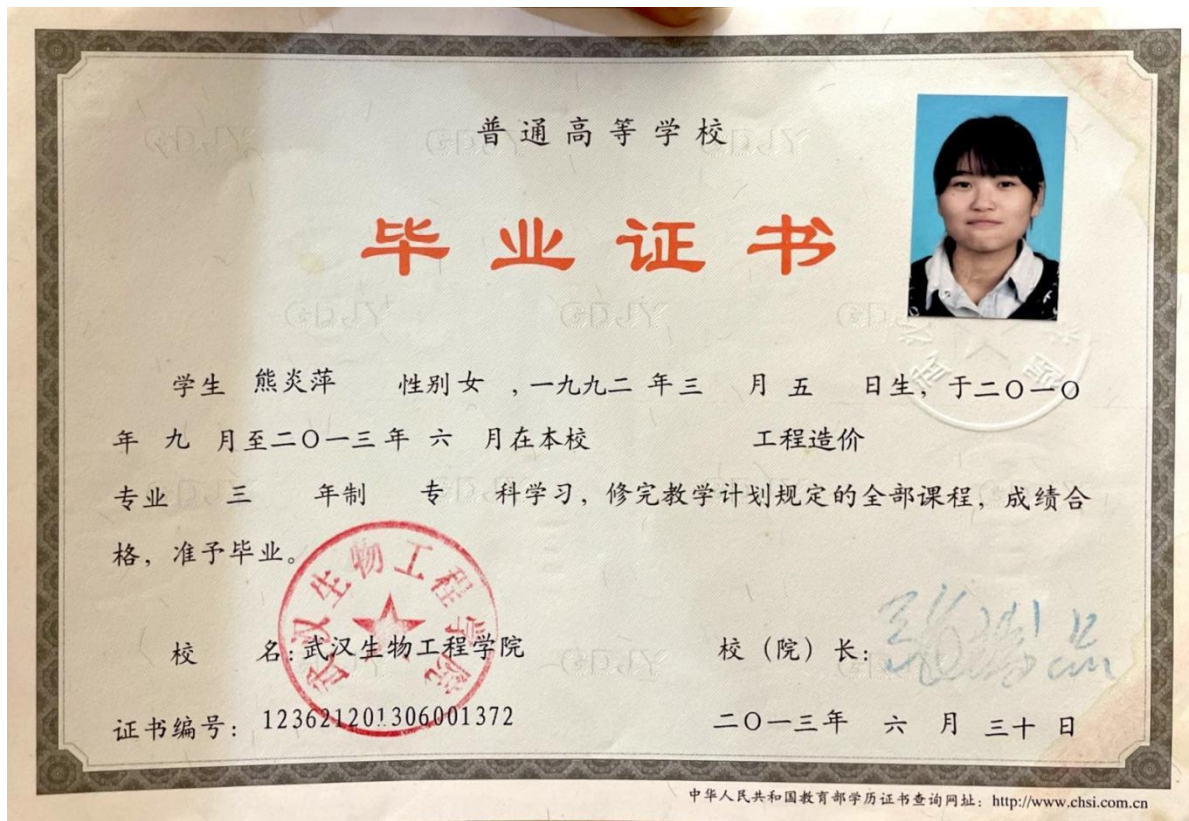 普通高等学校
毕业证书
学生 熊炎萍 性别 女 ，一九九二 年 三 月 五 日生，于二〇一〇
年 九 月至二〇一三年 六 月在本校 工程造价
专业 三 年制 专 科学习，修完教学计划规定的全部课程，成绩合
格，准予毕业。
武汉生物工程学院
校 名：武汉生物工程学院 校（院）长：
证书编号：123621201306001372 二〇一三年 六 月 三十 日
中华人民共和国教育部学历证书查询网址：http://www.chsi.com.cn